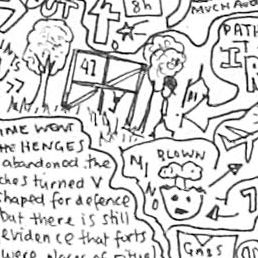 OUT
8h
MUCH
PATH
41
INE WENT
HENGES
abandoned the
ches turned V
shaped for defence
but there is still
evidence that forts
were places of
BLOWN
MIND
Gnss